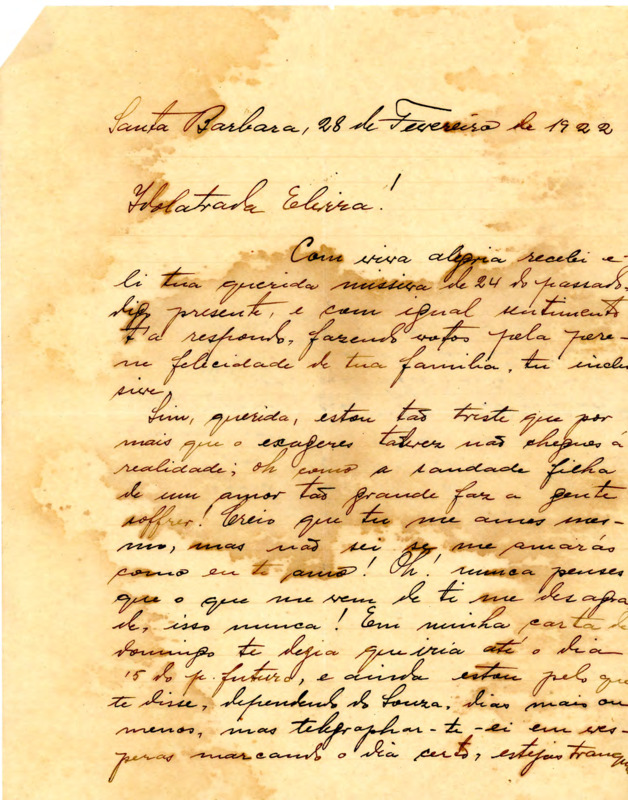 Santa Barbara, 28 de Fevereiro de 1922
Idolatrada Elvira!
Com viva alegria recebi e
li tua querida missiva de 24 do passado,
digo, presente, e com igual sentimento
t'a respondo, fazendo votos pela pere-
ne felicidade de tua familia, tu inclu
sive.
Sim, querida, estou tão triste que por
mais que o exageres talvez não chegues á
realidade; oh como a saudade filha
de um amor tão grande faz a gente
soffrer! Creio que tu me ames mes-
mo, mas não sei se me amarás
como eu te amo! Oh! nunca penses
que o que me vem de ti me desagra
de, isso nunca! Em minha carta de
domingo te dezia que iria até o dia
15 do p. futuro, e ainda estou pelo que
te disse, dependendo do Souza, dias mais ou
menos, mas telegraphar-te-ei em ves-
peras marcando o dia certo, estejas tranqu